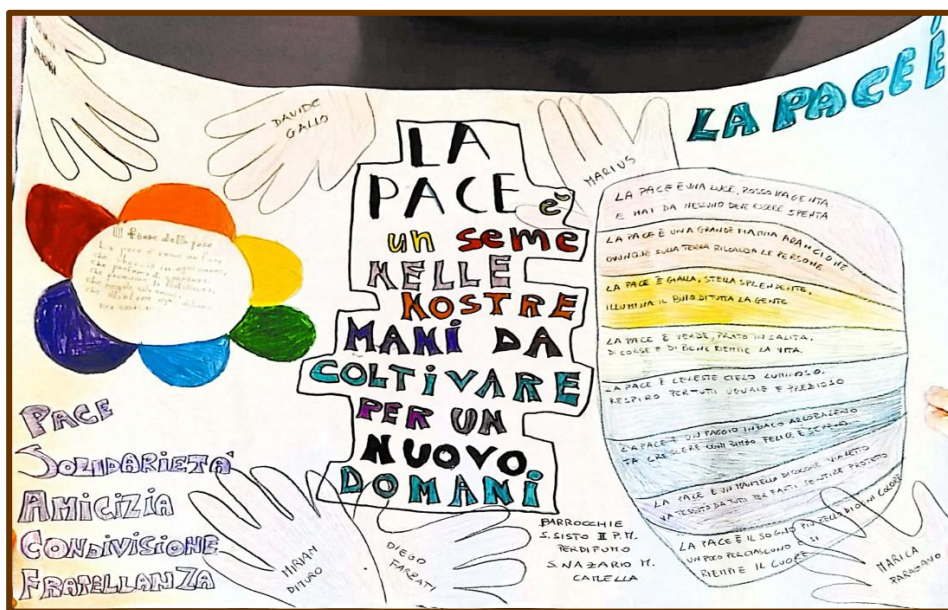 DAVIDE
GALLO
MARIUS
LA PACE É
LA
PACE è
un seme
NELLE
NOSTRE
MANI DA
COLTIVARE
PER UN
NUOVO
DOMANI
Il fiore della pace
La pace è come un fiore
LA PACE È UNA LUCE, ROSSO MAGENTA
E MAI DA NESSUNO DEVE ESSERE SPENTA
LA PACE È UNA GRANDE FIAMMA ARANCIONE
OVUNQUE SULLA TERRA RISCALDA LE PERSONE
LA PACE È GIALLA, STELLA SPLENDENTE,
ILLUMINA IL BUIO DI TUTTA LA GENTE.
LA PACE È VERDE, PRATO IN SALITA,
DI CORSE E DI BENE RIEMPIE LA VITA.
LA PACE È CELESTE CIELO LUMINOSO,
RESPIRO PER TUTTI UGUALE E PREZIOSO
LA PACE È UN RAGGIO INDACO ARCOBALENO
FA CRESCERE OGNI BIMBO FELICE E SERENO.
LA PACE È UN MANTELLO DI COLORE VIOLETTO
VA TESSUTO DA TUTTI PER FARTI SENTIRE PROTETTO
LA PACE È IL SOGNO PIÙ BELLO DI OGNI COLORE
UN POCO PER CIASCUNO E SI
RIEMPIE IL CUORE
PACE
SOLIDARIETÀ
AMICIZIA
CONDIVISIONE
FRATELLANZA
MIRIAM
DITURO
DIEGO
FARZATI
PARROCCHIE
S. SISTO II P.M.
PERDIFUMO
S. NAZARIO M.
CAMELLA
MARICA